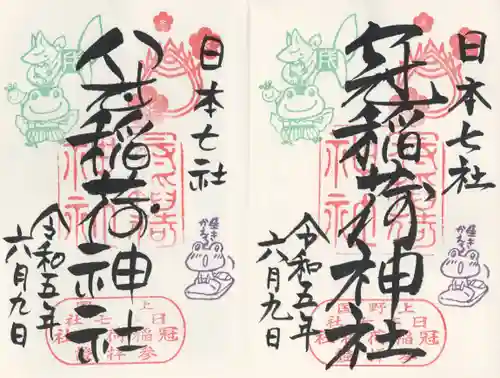 日本七社
稲荷神社
令和五年
六月九日
かえる
上野国
日本七社
冠稲荷神社
日本七社
冠稲荷神社
令和五年
六月九日
かえる
上野国
日本七社
冠稲荷神社